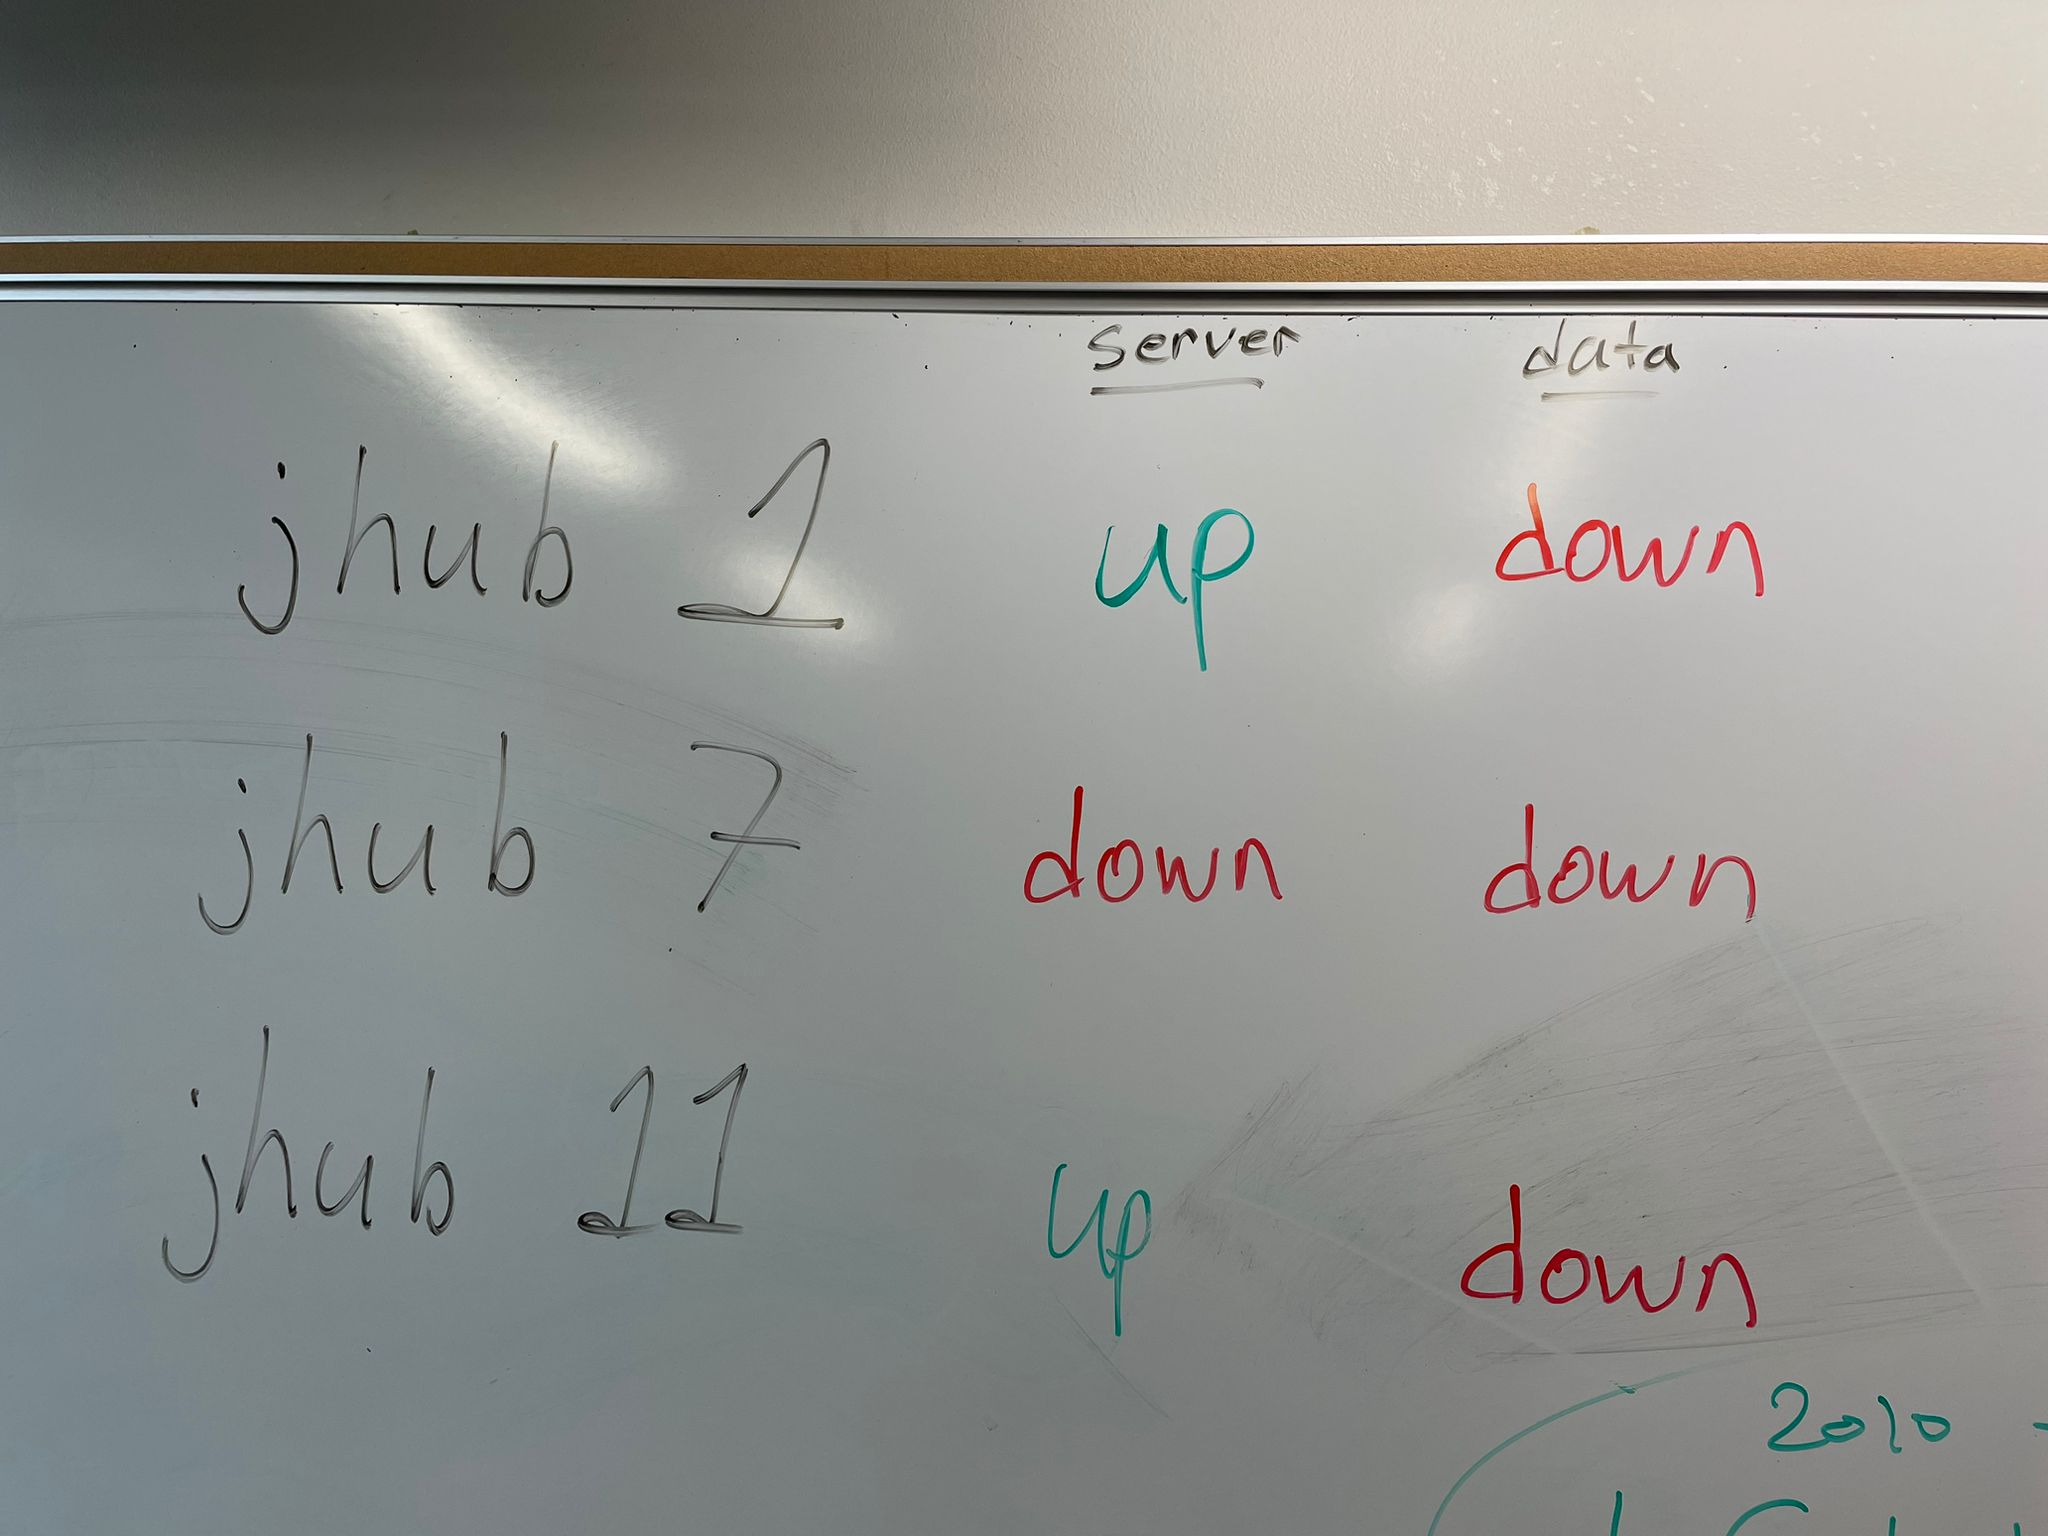 server data
jhub 1 up down
jhub 7 down down
jhub 11 up down
2010